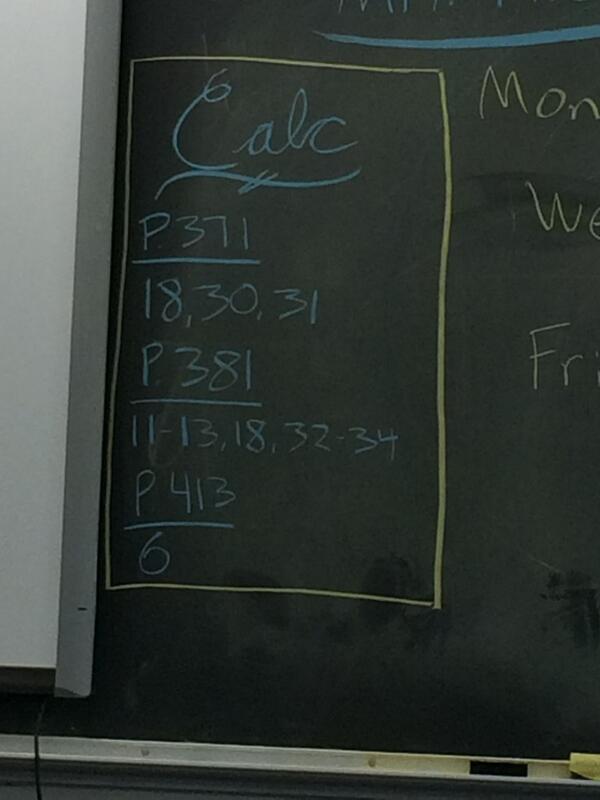 Calc
P.371
18,30,31
P.381
11-13,18,32-34
P.413
6
Mon
We
Fri